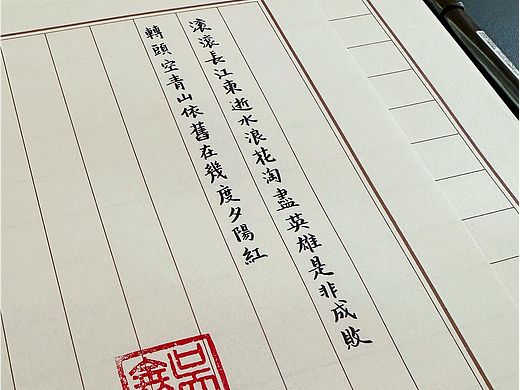 滚滚長江東逝水浪花淘盡英雄是非成敗
轉頭空青山依舊在幾度夕陽紅